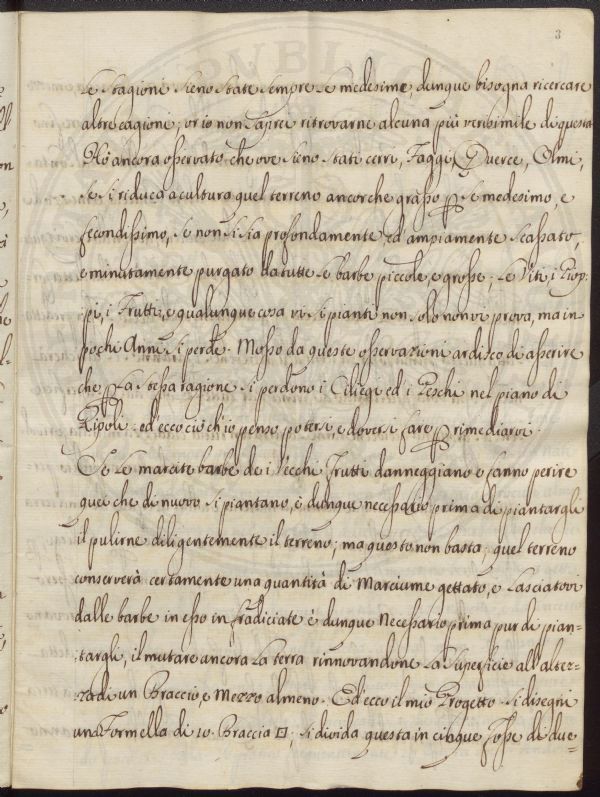 3
le stagioni sieno state sempre le medesime, dunque bisogna ricercare
altre cagione; or io non saprei ritrovarne alcuna più verisimile di questa
Hò ancora osservato che ove sieno stati cerri, Faggi, Querce, Olmi,
se si riduca a cultura quel terreno ancorche grasso p se medesimo, e
fecondissimo, se non si sia profondamente ed'ampiamente scassato,
e minutamente purgato da tutte le barbe piccole, e grosse. Le Viti, i Piop=
pi, i Frutti, e qualunque cosa vi si pianti non solo non vi prova, ma in
pochi Anni si perde. Mosso da queste osservazioni ardisco di asserire
che p la stessa ragione si perdono i Ciliegi ed i Peschi nel piano di
Ripoli: ed'ecco ciò ch'io penso potersi, e doversi fare p rimediarvi.
Se le marcite barbe de i Vecchi Frutti danneggiano e fanno perire
quei che di nuovo si piantano, è dunque necessario prima di piantargli
il pulirne diligentemente il terreno; ma questo non basta; quel terreno
conserverà certamente una quantità di Marciume gettato, e lasciatovi
dalle barbe in esso infradiciate è dunque Necessario prima pur di pian=
targli, il mutare ancora la terra rinnovandone la superficie all'altez=
za di un Braccio, e Mezzo almeno. Ed ecco il mio Progetto. Si disegni
una Formella di 10. Braccia □; si divida questa in cinque Fosse di due=